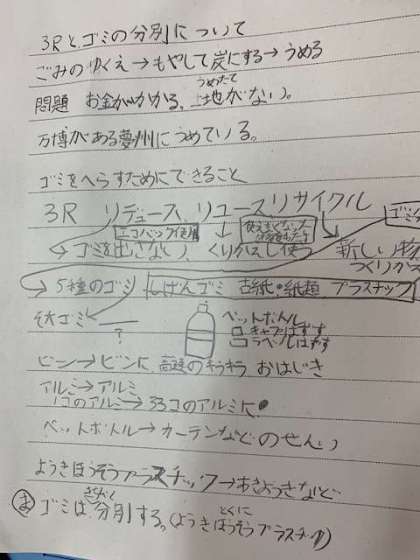 3Rとゴミの分別について
ごみのゆくえ→もやして炭にする→うめる
問題 お金がかかる、土地がない。
うめたて
万博がある夢州にうめている。
ゴミをへらすためにできること
3R リデュース、リユースリサイクル
エコバック使用
→ゴミを出さない、くりかえし使う
新しい物
つくりか
→5種のゴミ しげんゴミ 古紙・紙類 プラスチック
そ大ゴミ
?
ペットボトル
□キャップはずす
□ラベルはずす
ビン→ビンに 道のキラキラ おはじき
アルミ→アルミ
1コのアルミ→33コのアルミに
ペットボトル→カーテンなどのせんい
ようきほうそうプラスチック→ようきなど
ま ゴミは分別する。(ようきほうそうプラスチック)
とくに